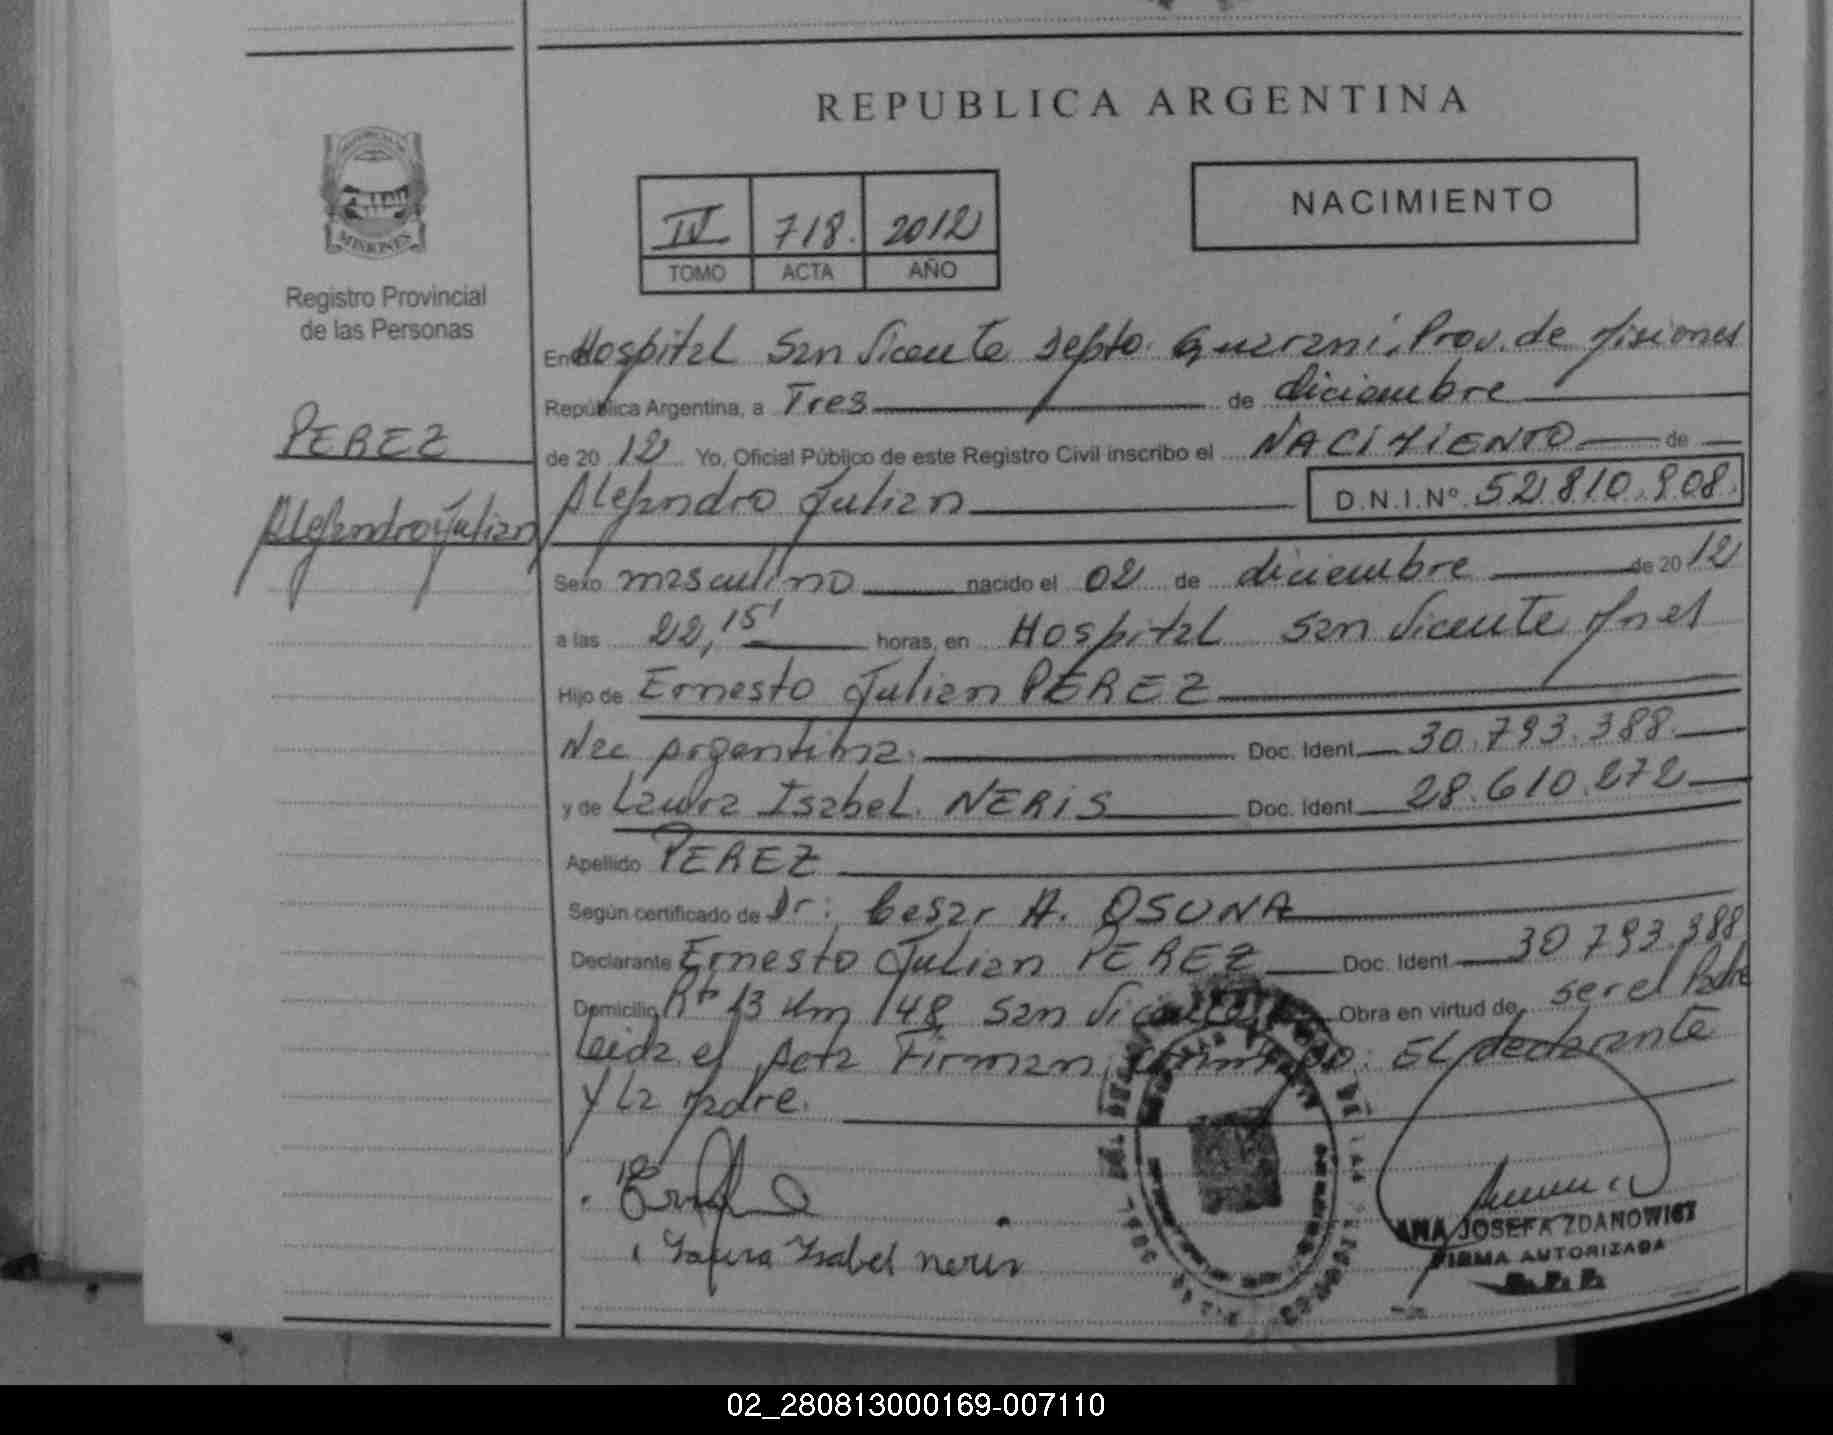 REPUBLICA ARGENTINA
NACIMIENTO
IV 718. 2012
TOMO ACTA AÑO
MISIONES
Registro Provincial
de las Personas
PEREZ
Alejandro Julian
En Hospital San Vicente Depto. Guarani, Prov. de Misiones
República Argentina, a Tres de diciembre
de 2012 Yo, Oficial Público de este Registro Civil inscribo el NACIMIENTO de
Alejandro Julian D.N.I.Nº 52.810.908.
Sexo masculino nacido el 02 de diciembre de 2012
a las 22,15' horas, en Hospital San Vicente Mnes
Hijo de Ernesto Julian PEREZ
Nac Argentina. Doc. Ident 30.793.388.
y de Laura Isabel. NERIS Doc. Ident 28.610.272
Apellido PEREZ
Según certificado de Dr: Cesar A. OSUNA
Declarante Ernesto Julian PEREZ Doc. Ident 30.793.388
Domicilio Rta 13 Km 148 San Vicente Obra en virtud de ser el Padre
Leida el Acta Firman conmigo: El declarante
y La Madre.
Laura Isabel neris
ANA JOSEFA ZDANOWICZ
FIRMA AUTORIZADA
R.P.P.
02_280813000169-007110